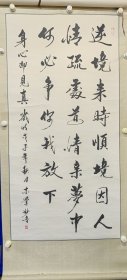 逆境来時順境因人
情疏處道情親夢中
何必争你我放下
身心即見真